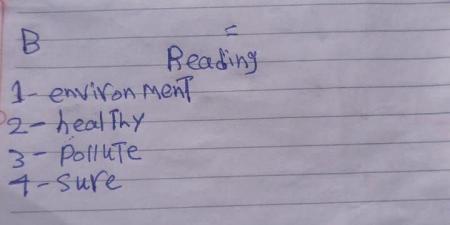 B
=
Reading
1- environment
2- healthy
3- pollute
4- sure